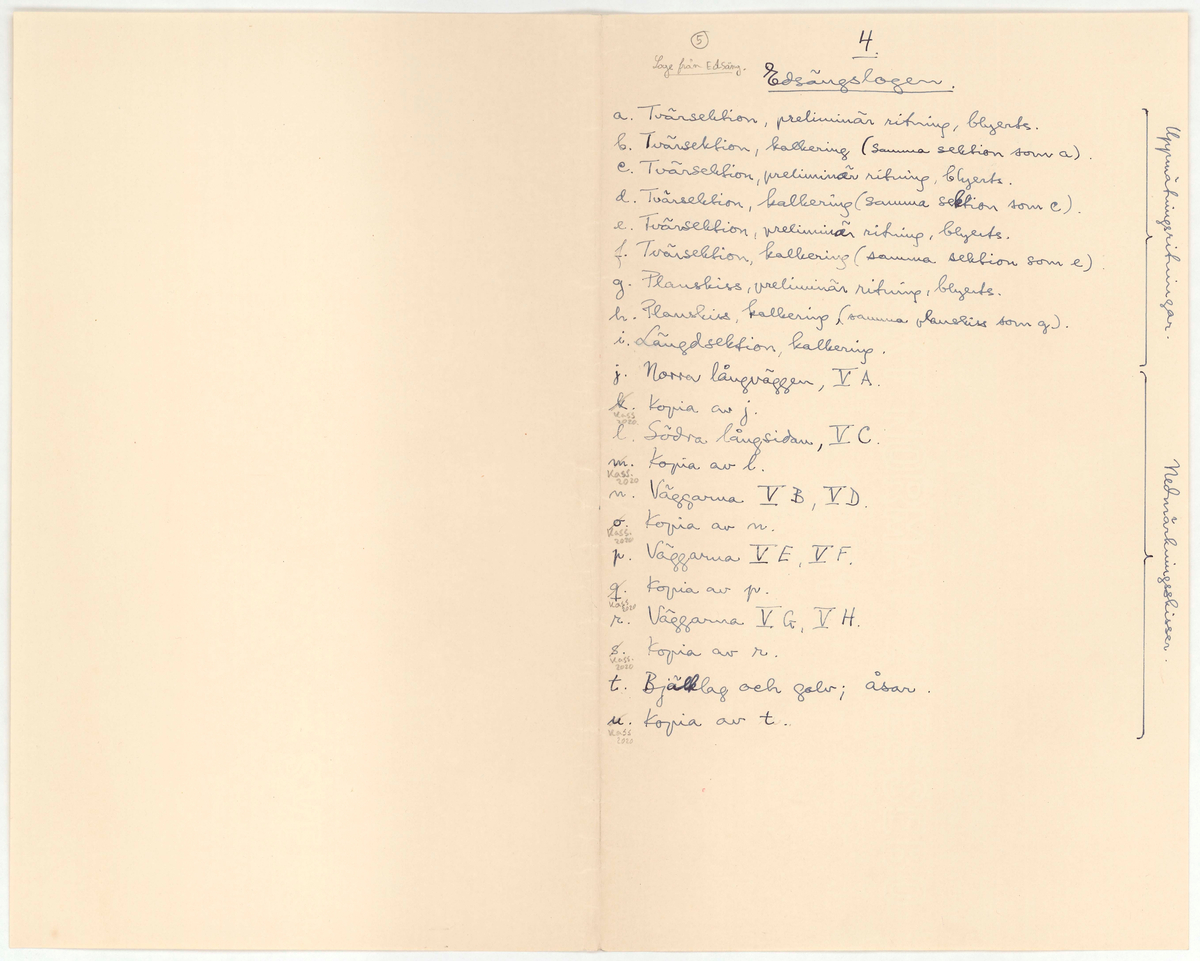 5
4.
Loge från Edsäng.
Edsängslogen.
a. Tvärsektion, preliminär ritning, blyerts.
b. Tvärsektion, kalkering (samma sektion som a).
c. Tvärsektion, preliminär ritning, blyerts.
d. Tvärsektion, kalkering (samma sektion som c).
e. Tvärsektion, preliminär ritning, blyerts.
f. Tvärsektion, kalkering (samma sektion som e)
g. Planskiss, preliminär ritning, blyerts.
h. Planskiss, kalkering, (samma planskiss som g).
i. Längdsektion, kalkering.
Uppmätningsritningar.
j. Norra långväggen, V A.
k. Kopia av j.
Kass. 2020.
l. Södra långsidan, V C.
m. Kopia av l.
Kass. 2020
n. Väggarna V B, V D.
o. Kopia av n.
Kass. 2020
p. Väggarna V E, V F.
q. Kopia av p.
Kass 2020
r. Väggarna V G, V H.
s. Kopia av r.
Kass. 2020
t. Bjälklag och golv; åsar.
u. Kopia av t.
Kass 2020
Nedmärkningsskisser.